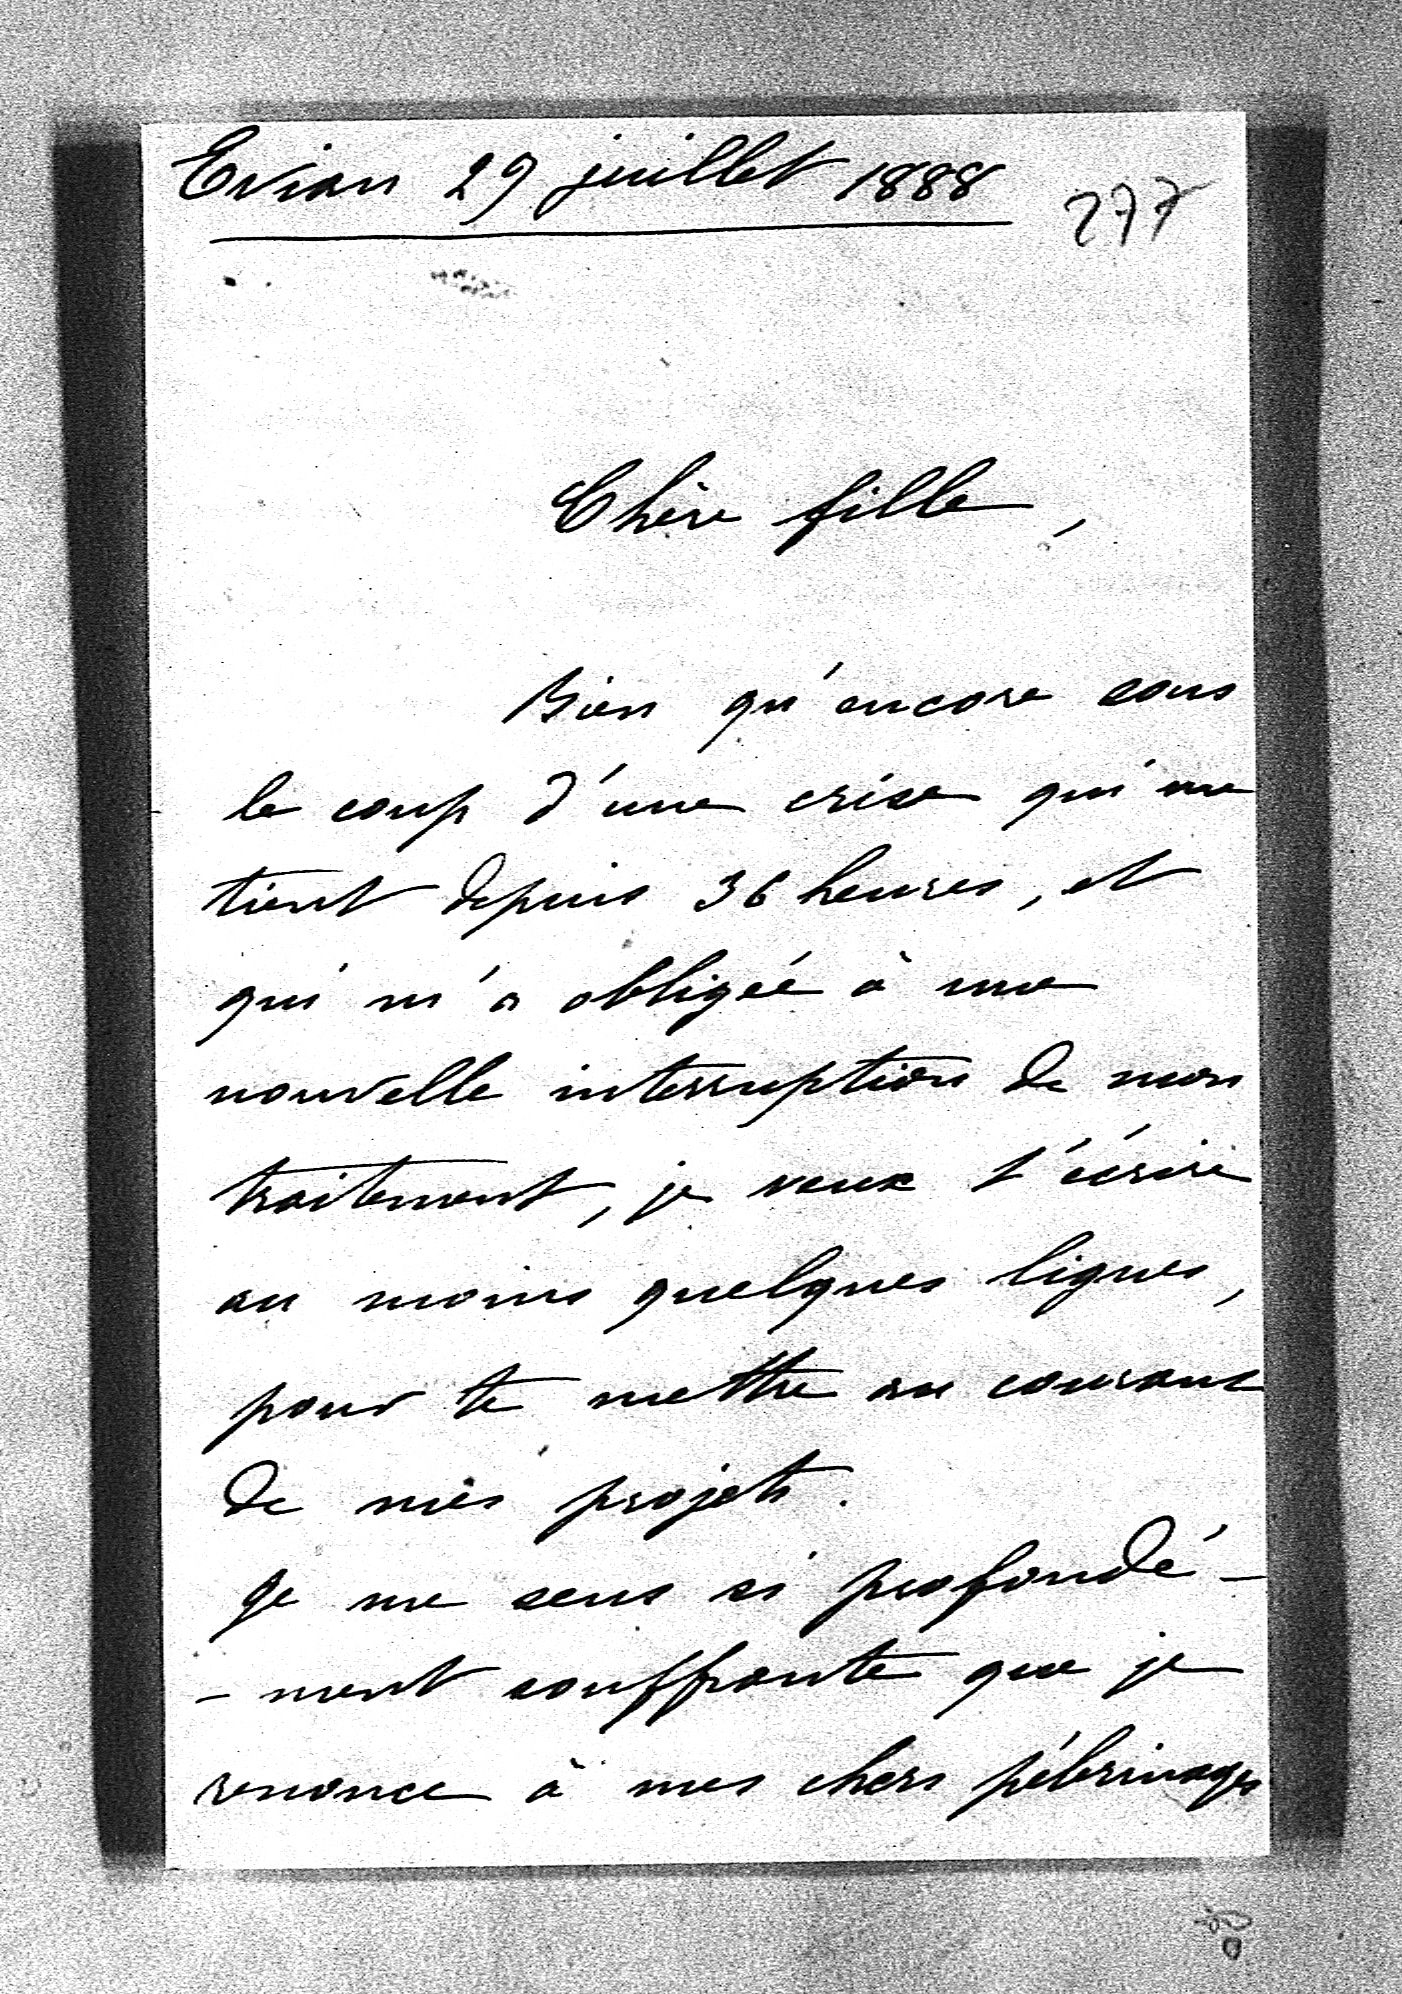 Evian 29 juillet 1888
277
Chère fille,
Bien qu'encore sous
le coup d'une crise qui me
tient depuis 36 heures, et
qui m'a obligée à une
nouvelle interruption de mon
traitement, je veux t'écrire
au moins quelques lignes,
pour te mettre au courant
de mes projets.
Je me sens si profondé-
-ment souffrante que je
renonce à mes chers pélerinages